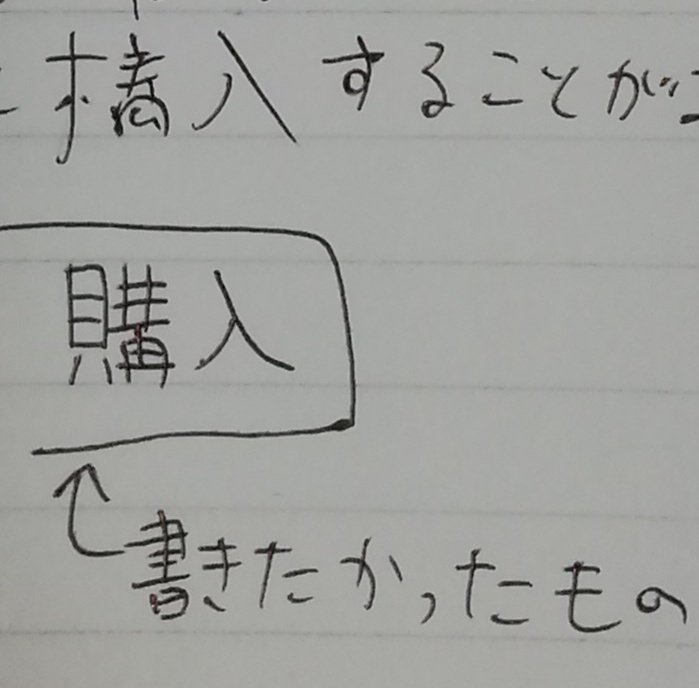 入することが
購入
書きたかったもの